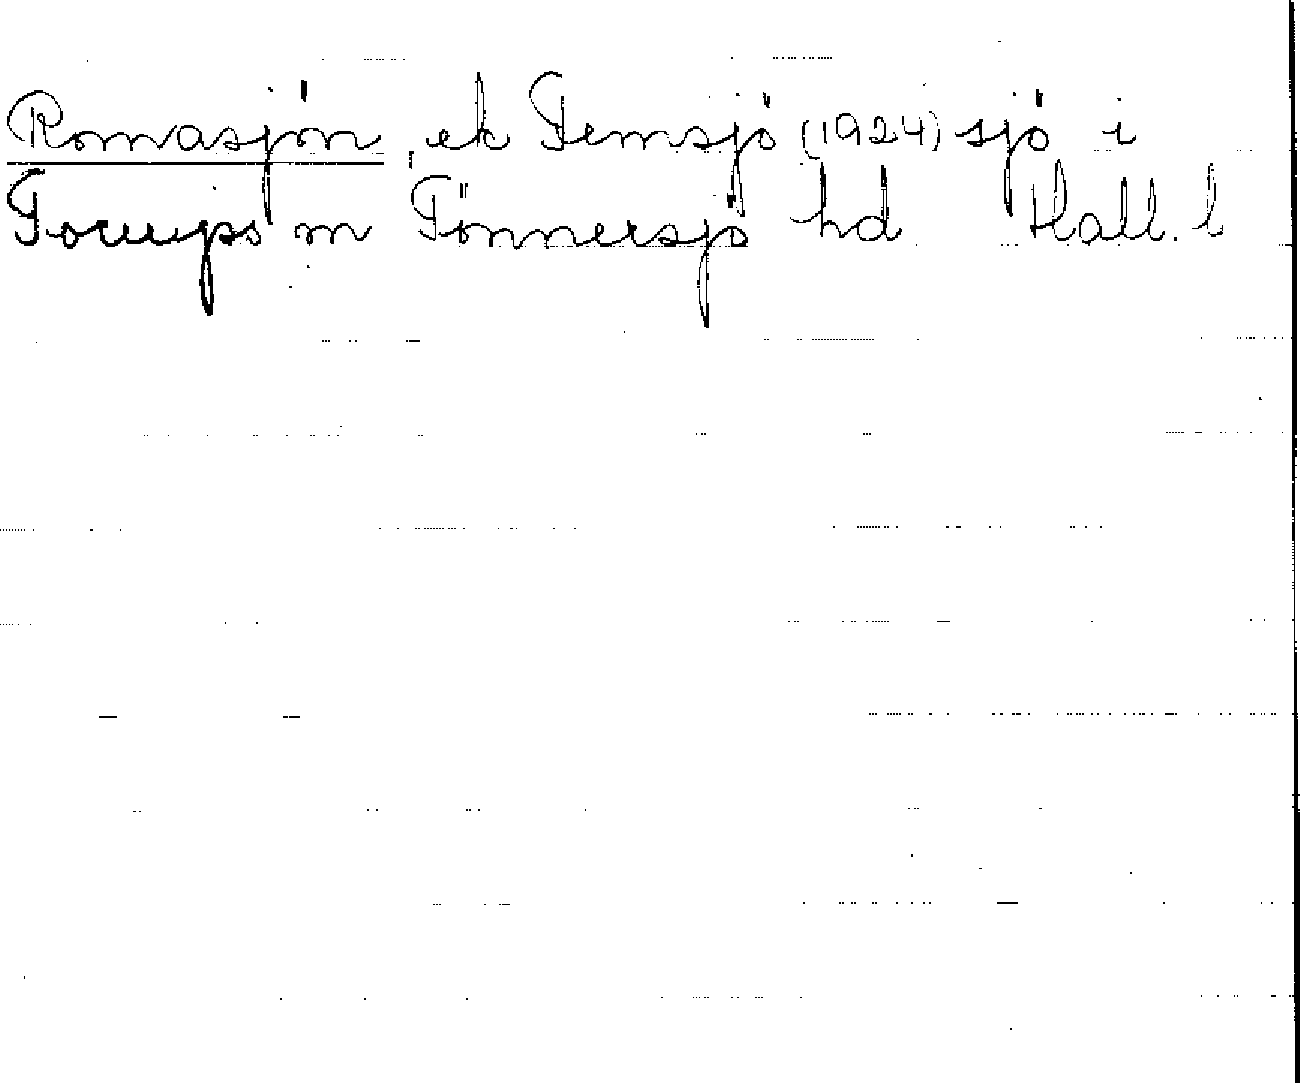 Romasjön, ek Femsjö (1924) sjö i
Torups sn Tönnersjö hd Hall. l